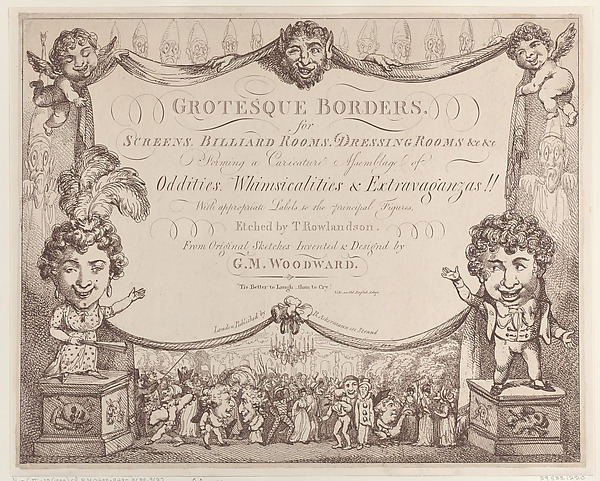 GROTESQUE BORDERS,
for
SCREENS, BILLIARD ROOMS, DRESSING ROOMS &c &c
Forming a Caricature Assemblage of
Oddities, Whimsicalities & Extravaganzas!!
With appropriate Labels to the principal Figures,
Etched by T. Rowlandson.
From Original Sketches Invented & Designd by
G.M. WOODWARD.
'Tis Better to Laugh than to Cry
London Published by R. Ackermann 101 Strand
59.533.1220